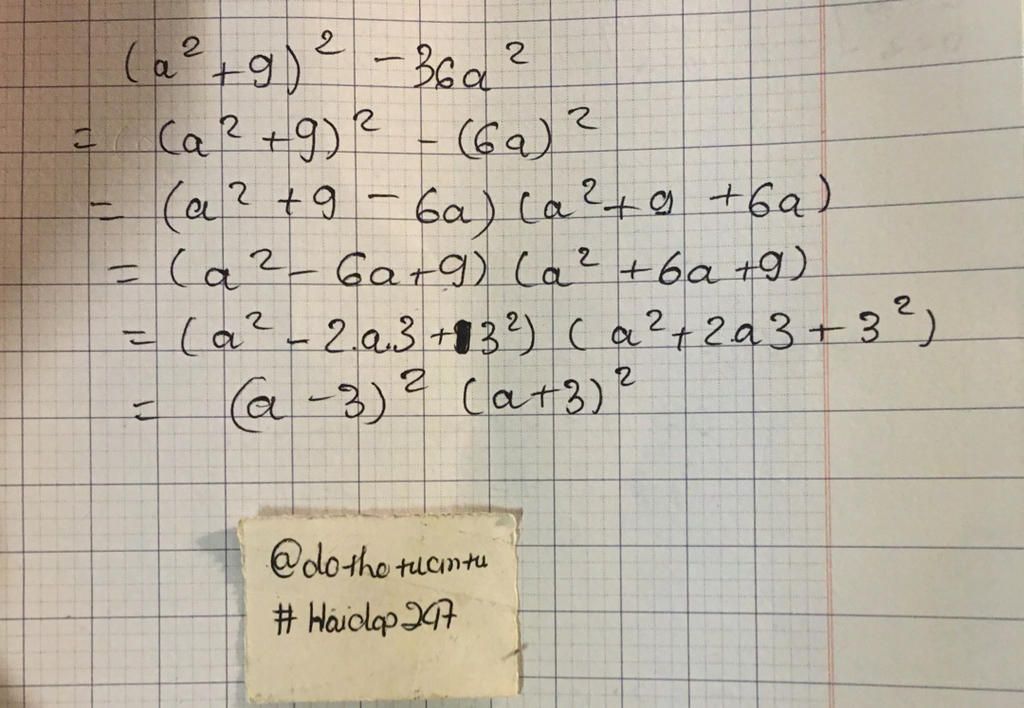 (a² + 9)² - 36a²
= (a² + 9)² - (6a)²
= (a² + 9 - 6a) (a² + 9 + 6a)
= (a² - 6a + 9) (a² + 6a + 9)
= (a² - 2.a.3 + 3²) (a² + 2.a3 + 3²)
= (a - 3)² (a + 3)²
@dothetuantu
# Hoidap247